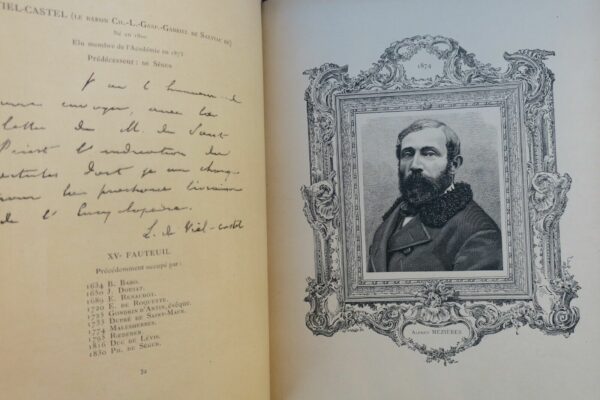 VIEL-CASTEL (LE BARON CH.-L.-GASP.-GABRIEL DE SALVIAC DE)
Né en 1800
Élu membre de l'Académie en 1873
Prédécesseur: DE SÉGUR
J'ai l'honneur de
envoyer, avec la
lettre de M. de Saint
Priest l'indication des
articles dont je me charge
pour la prochaine livraison
de l'Encyclopédie.
L. de Viel-castel
XVe FAUTEUIL
Précédemment occupé par:
1634 B. BARO.
1650 J. DOUJAT.
1689 E. RENAUDOT.
1720 E. DE ROQUETTE.
1725 GONDRIN D'ANTIN, ÉVÊQUE.
1733 DUPRÉ DE SAINT-MAUR.
1774 MALESHERBES.
1795 RŒDERER.
1816 DUC DE LÉVIS.
1830 PH. DE SÉGUR.
32
1874
ALFRED MÉZIÈRES